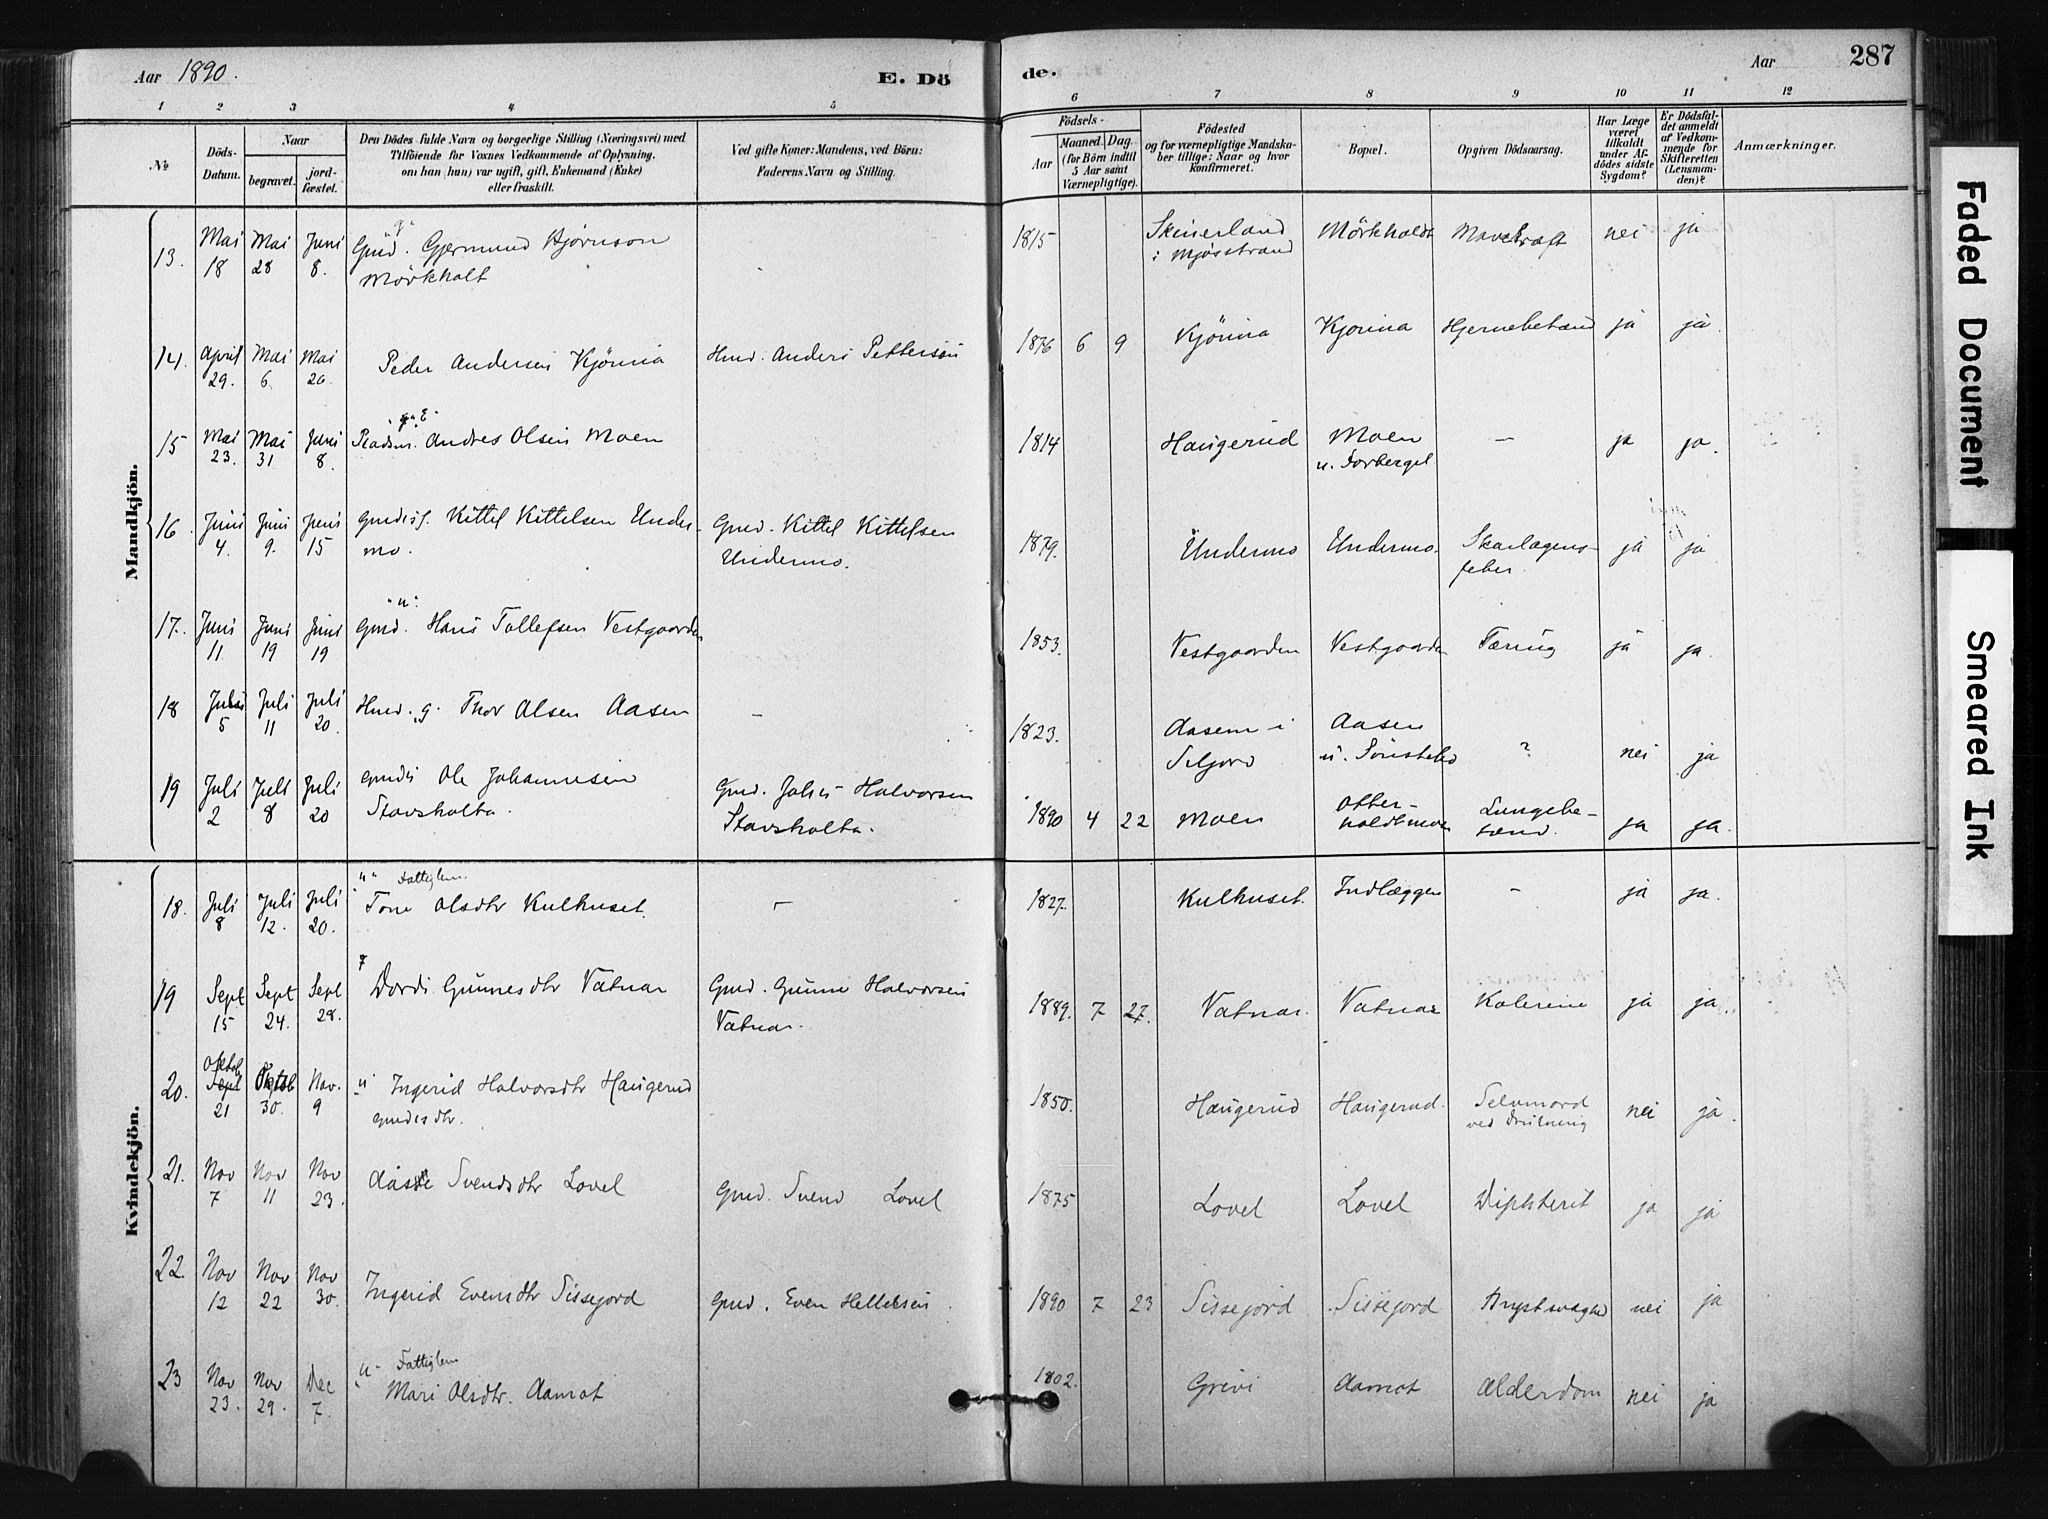 Aar 1890.
E. Dö
de.
Aar
287
1 2 3 4 5 6 7 8 9 10 11 12
No
Döds-Datum.
Naar
begravet.
jord-fæstet.
Den Dödes fulde Navn og borgerlige Stilling (Næringsvei) med
Tilföiende for Voxnes Vedkommende af Oplysning,
om han (hun) var ugift, gift, Enkemand (Enke)
eller fraskilt.
Ved gifte Koner: Mandens, ved Börn:
Faderens Navn og Stilling.
Födsels-
Aar
Maaned. Dag.
(for Börn indtil
5 Aar samt
Værnepligtige).
Födested
og for værnepligtige Mandska-
ber tillige: Naar og hvor
konfirmeret.
Bopæl.
Opgiven Dödsaarsag.
Har Læge
været
tilkaldt
under Af-
dödes sidste
Sygdom?
Er Dödsfal-
det anmeldt
af Vedkom-
mende for
Skifteretten
(Lensman-
den)?
Anmærkninger.
Mandkjön.
"g"
13. Mai 18 Mai 28 Juni 8. Gmd. Gjermund Bjørnson - 1815 i Mjøsstrand Mörkholdt nei ja
Mörkholt
14. April 29. Mai 6. Mai 20. Peder Andersen Kjönna Hmd. Anders Pettersen 1876 6 9 Kjönna Kjönna Hjernebetænd ja ja.
15 Mai 23. Mai 31 Juni 8. Pladsm. Andres Olsen Moen 1814 Haugerud Moen — ja ja.
16. Juni 4. Juni 9. Juni 15 Gmdss. Kittel Kittelsen Under- Gmd. Kittel Kittelsen 1879. Undermo Undermo. Skarlagens- ja ja
mo. Undermo. feber.
"u"
17. Juni 11 Juni 19 Juni 19 Gmd. Hans Tollefsen Vestgaarden 1853. Vestgaarden Vestgaarden Tæring ja ja.
18 Juli 5 Juli 11 Juli 20. Hmd. g. Thor Olsen Aasen — 1823. Aasen i Aasen ? nei ja
Seljord
19 Juli 2 Juli 8 Juli 20 Gmdss Ole Johannesen Gmd. Johs Halvorsen 1890 4 22 Moen Otter- Lungebe- ja ja.
Stavsholta. Stavsholta. holdtmoen tænd.
Kvindekjön.
"u" Fattiglem.
18. Juli 8 Juli 12. Juli 20. Tone Olsdtr Kulhuset. — 1827. Kulhuset. Indlæggen — ja ja.
19 Sept 15 Sept 24. Sept 28. Dordi Gunnesdtr Vatnar Gmd. Gunne Halvorsen 1889. 7 27. Vatnar. Vatnar Kolerine ja ja.
Vatnar.
20. Oktob 21 Oktob 30. Nov. 9 u Ingerid Halvorsdtr Haugerud 1850. Haugerud Haugerud. Selvmord nei ja.
Gmdsdtr. ved Drukning
21. Nov 7 Nov 11 Nov 23. Aase Svendsdtr Lovel Gmd. Svend Lovel 1875 Lovel Lovel Diphterit ja ja
22. Nov 12 Nov 22 Nov 30. Ingerid Evensdtr Sissejord Gmd. Even Helleksen. 1890 7 23 Sissejord Sissejord nei ja
"u" Fattiglem
23 Nov 23. Nov 29. Dec 7. Mari Olsdtr. Aamot 1802. Grivi Aamot Alderdom nei ja
Faded Document
Smeared Ink